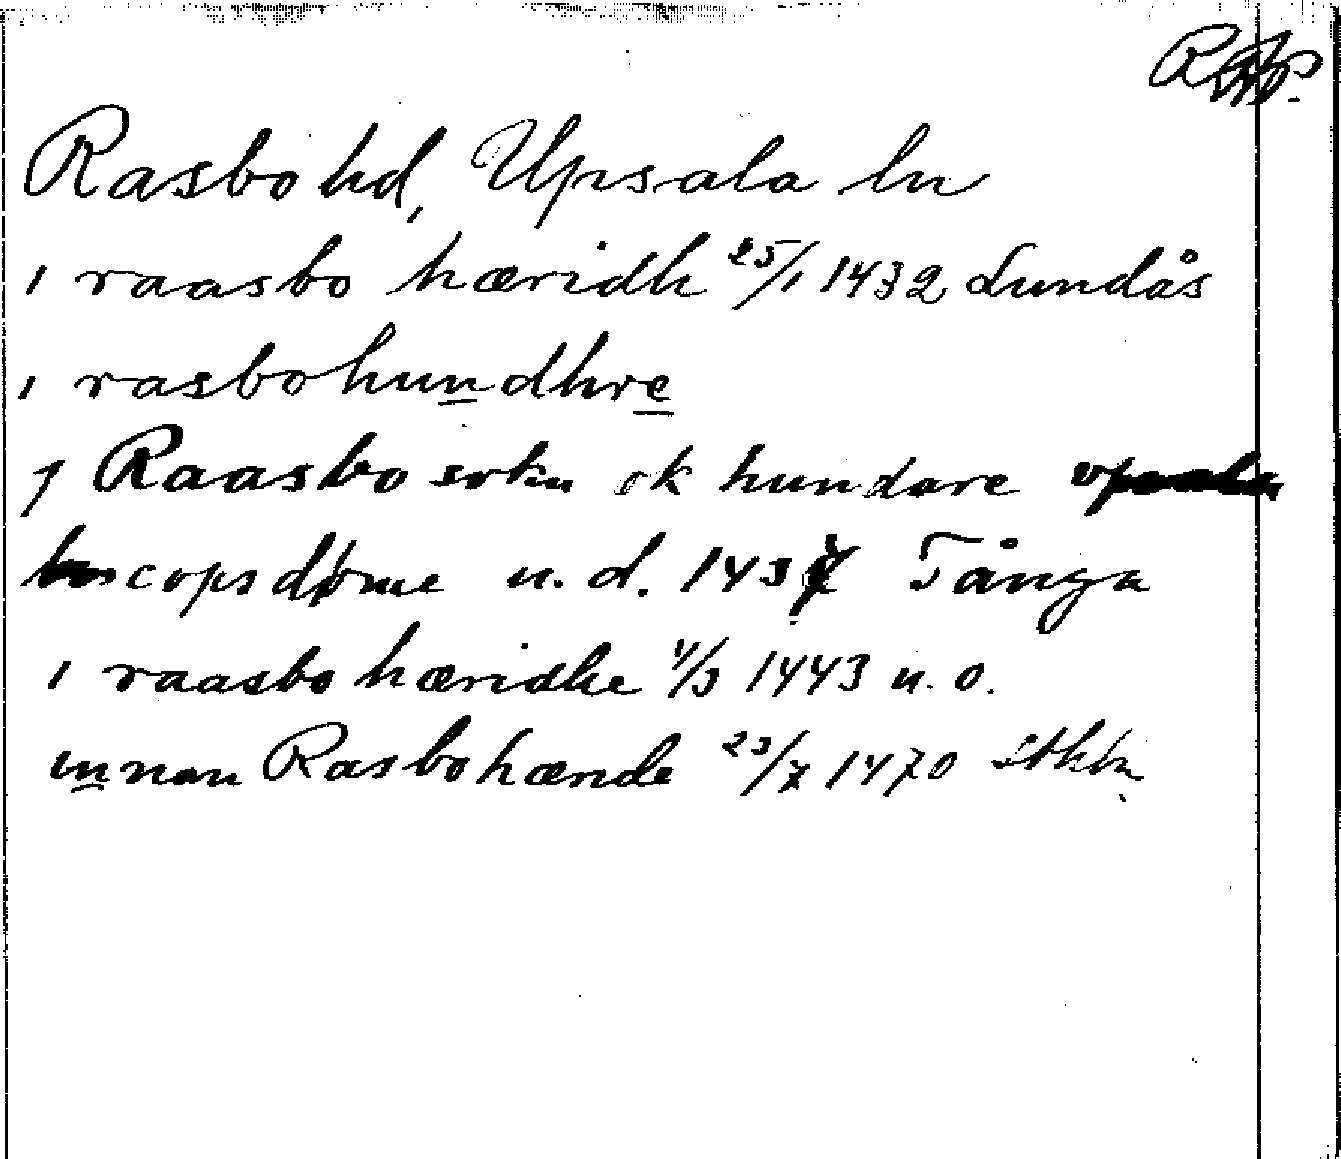 RAP.
Rasbo hd, Upsala ln
i raasbo hæridh 25/1 1432 Lundås
i rasbohundhre
j Raasbo sokn ok hundare upsala
biscopsdøme u. d. 1437 Tånga
i raasbo hæridhe 1/3 1443 u. o.
innan Rasbohænde 23/7 1470 Sthlm